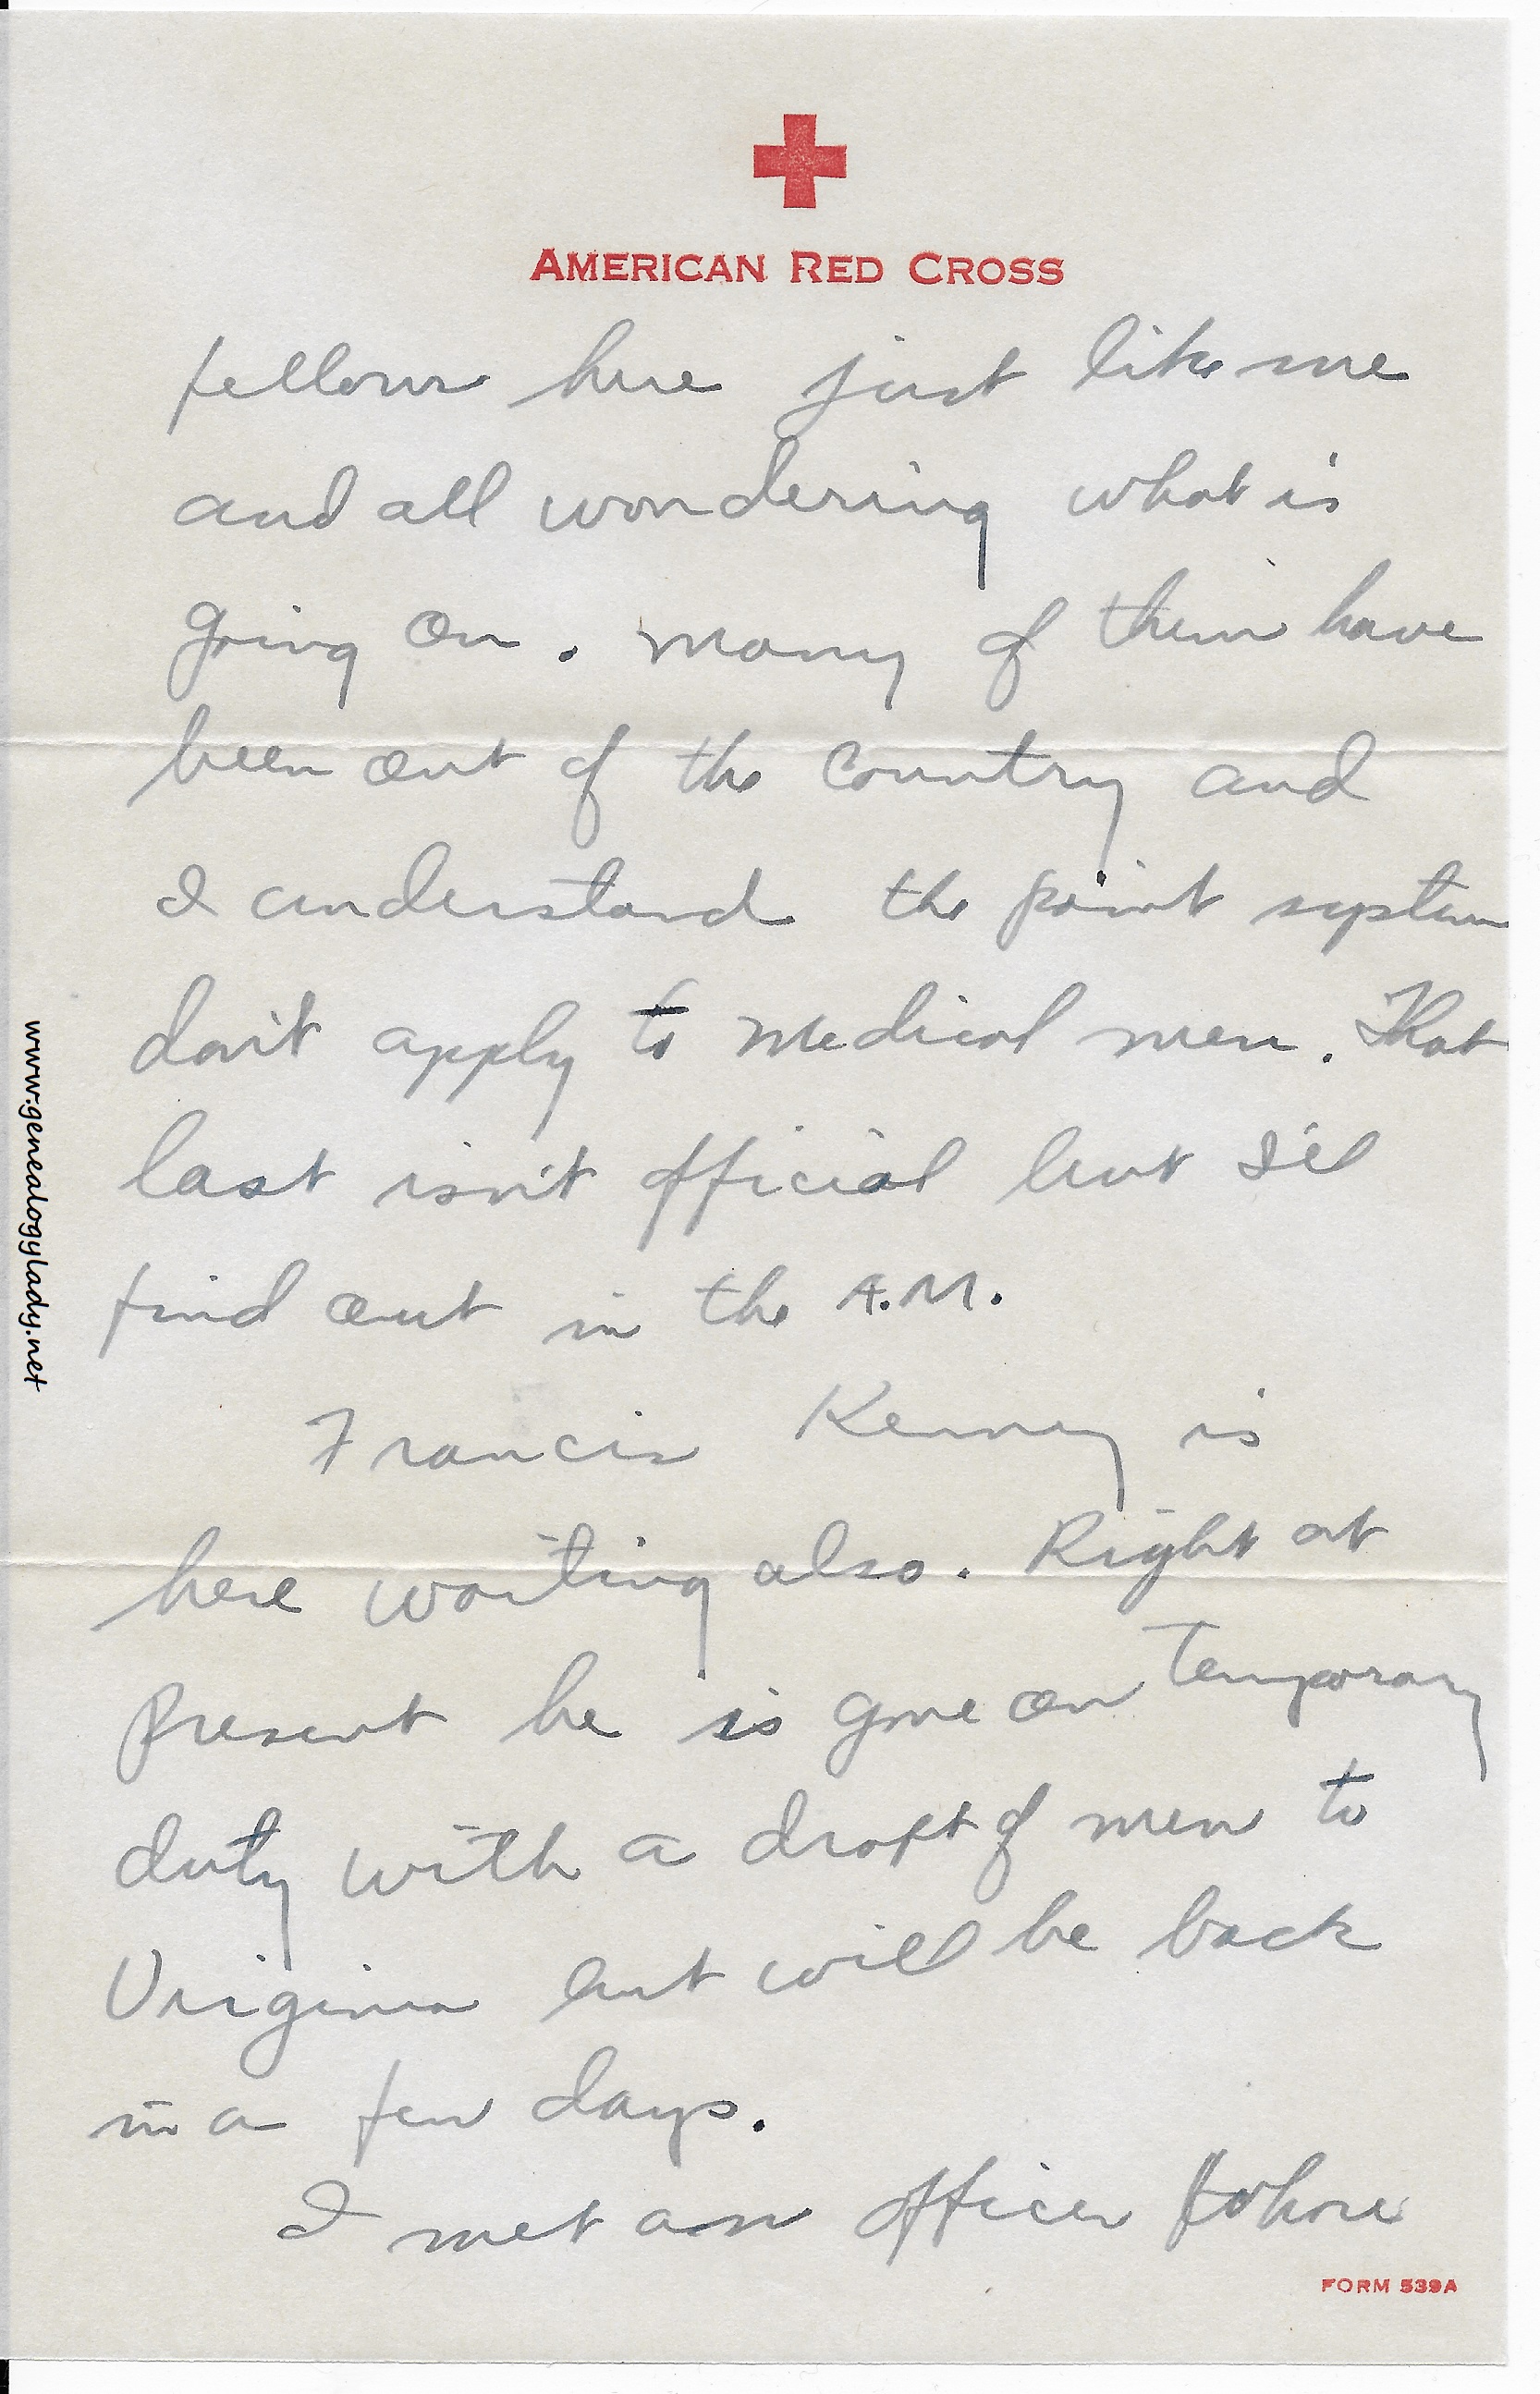 AMERICAN RED CROSS
fellows here just like me
and all wondering what is
going on. Many of them have
been out of the country and
I understand the point system
don't apply to medical men. That
last isn't official but I'll
find out in the A.M.
Francis Kenney is
here waiting also. Right at
present he is gone on temporary
duty with a draft of men to
Virginia but will be back
in a few days.
I met an officer
FORM 539A
www.genealogylady.net